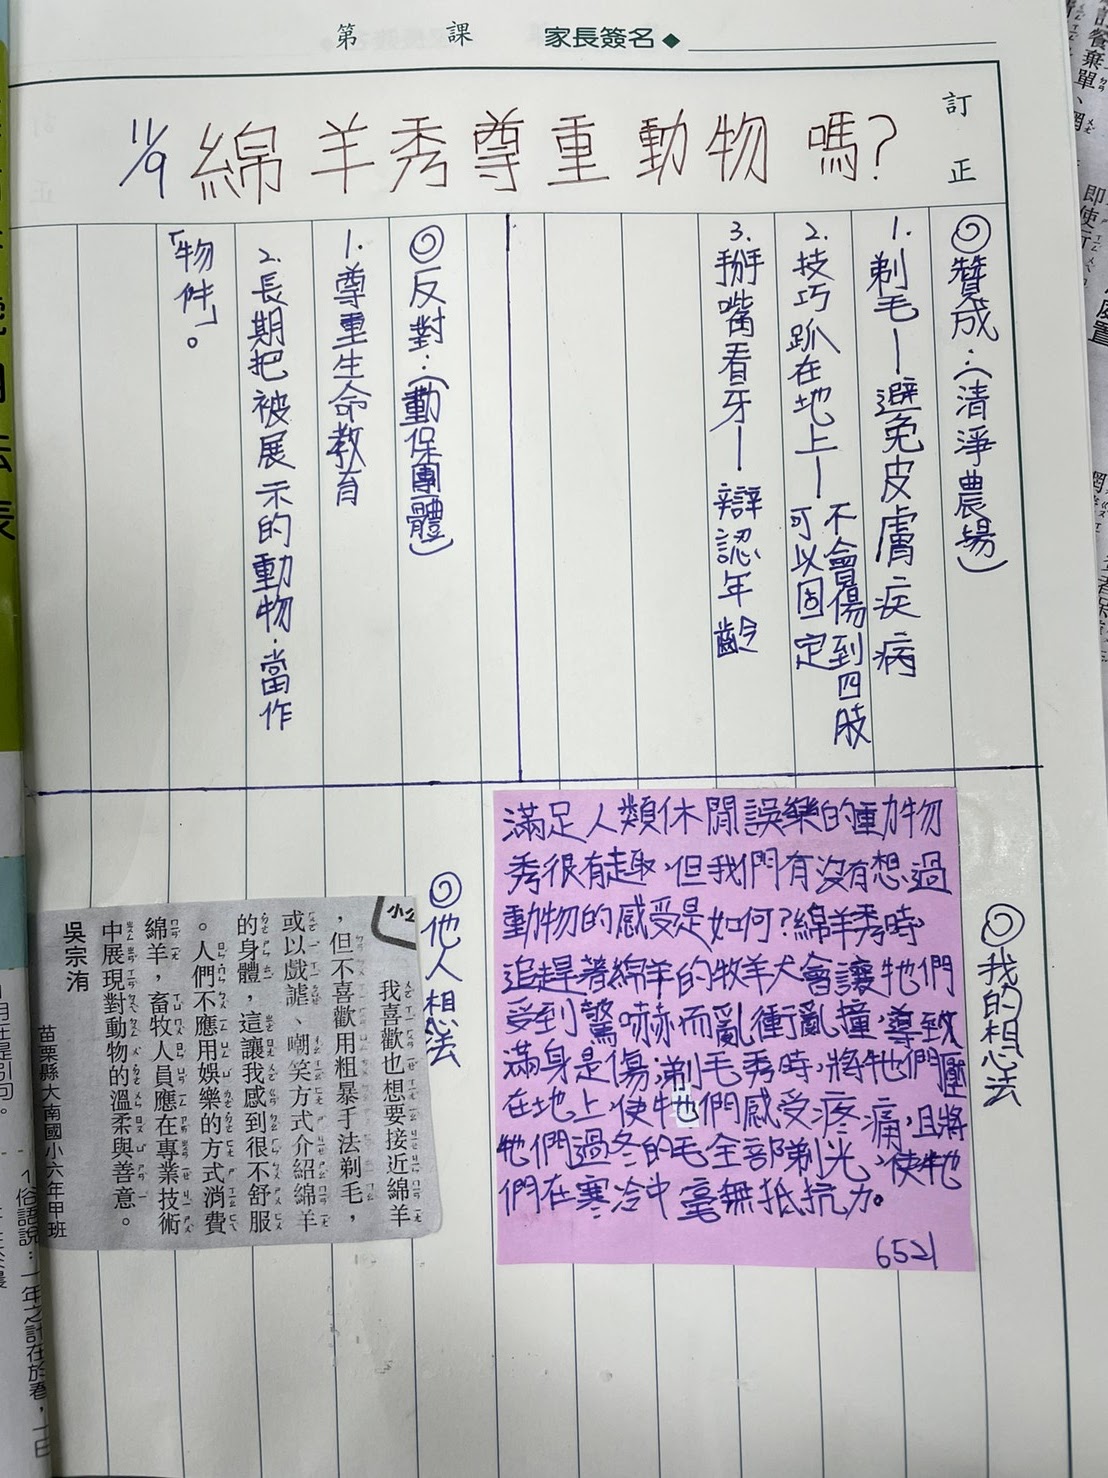 第 課 家長簽名◆
訂正
11/9 綿羊秀尊重動物嗎?
◎贊成：(清淨農場)
1. 剃毛—避免皮膚疾病
2. 技巧趴在地上—不會傷到四肢
可以固定
3. 掰嘴看牙—辯認年齡
◎反對：(動保團體)
1. 尊重生命教育
2. 長期把被展示的動物.當作
「物件」。
◎我的想法
滿足人類休閒誤樂的動物
秀很有趣，但我們有沒有想過
動物的感受是如何?綿羊秀時
追趕著綿羊的牧羊犬會讓牠們
受到驚嚇而亂衝亂撞，導致
滿身是傷；剃毛秀時，將牠們壓
在地上，使牠們感受疼痛，且將
牠們過冬的毛全部剃光，使牠
們在寒冷中毫無抵抗力。
6521
◎他人想法
我喜歡也想要接近綿羊
，但不喜歡用粗暴手法剃毛，
或以戲謔、嘲笑方式介紹綿羊
的身體，這讓我感到很不舒服
。人們不應用娛樂的方式消費
綿羊，畜牧人員應在專業技術
中展現對動物的溫柔與善意。
苗栗縣大南國小六年甲班
吳宗洧
1俗語說：一年之計在於春，一日